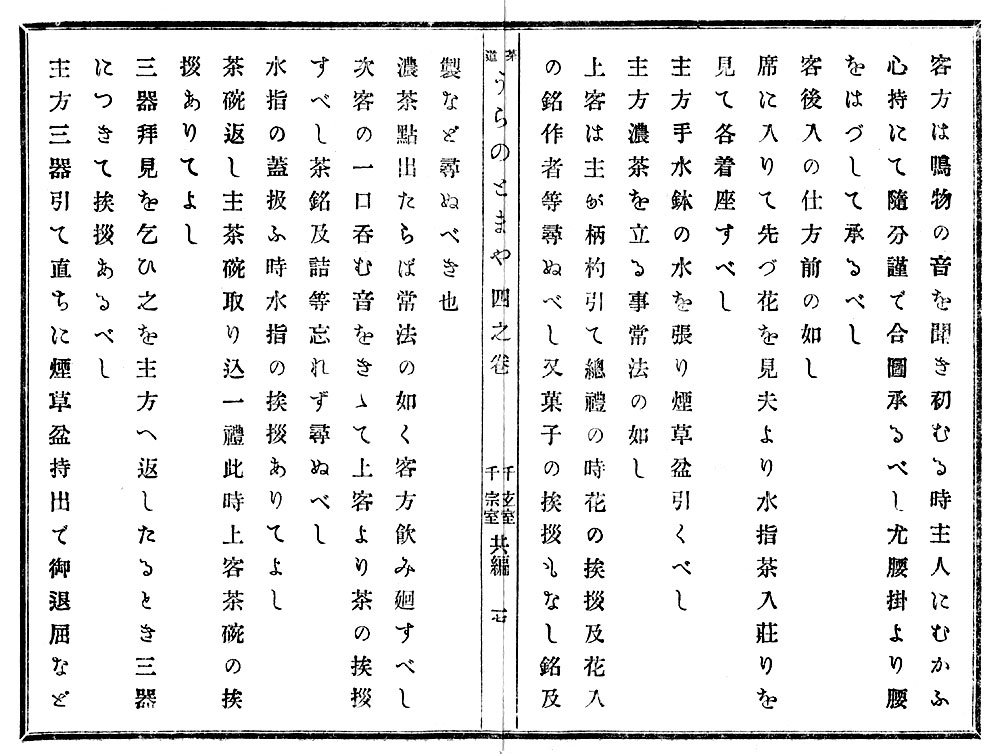 客方は鳴物の音を聞き初むる時主人にむかふ
心持にて隨分謹で合圖承るべし尤腰掛より腰
をはづして承るべし
客後入の仕方前の如し
席に入りて先づ花を見夫より水指茶入莊りを
見て各着座すべし
主方手水鉢の水を張り煙草盆引くべし
主方濃茶を立る事常法の如し
上客は主が柄杓引て總禮の時花の挨拶及花入
の銘作者等尋ぬべし又菓子の挨拶もなし銘及
茶道 うらのとまや 四之卷 千玄室 千宗室 共編 一七
製など尋ぬべき也
濃茶點出たらば常法の如く客方飮み廻すべし
次客の一口呑む音をきゝて上客より茶の挨拶
すべし茶銘及詰等忘れず尋ぬべし
水指の蓋扱ふ時水指の挨拶ありてよし
茶碗返し主茶碗取り込一禮此時上客茶碗の挨
拶ありてよし
三器拜見を乞ひ之を主方へ返したるとき三器
につきて挨拶あるべし
主方三器引て直ちに煙草盆持出で御退屈など